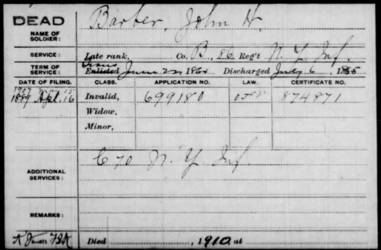 DEAD
NAME OF SOLDIER: Barber, John H.
SERVICE: Late rank, Co. B, 26 Reg't N.Y. Inf.
TERM OF SERVICE: Enlisted June 22, 1862 Discharged July 6, 1865
DATE OF FILING. CLASS. APPLICATION NO. LAW. CERTIFICATE NO.
Apl. 16 Invalid, 699180 874871
Widow,
Minor,
ADDITIONAL SERVICES: C 70 N.Y. Inf
REMARKS:
Died 1910, at